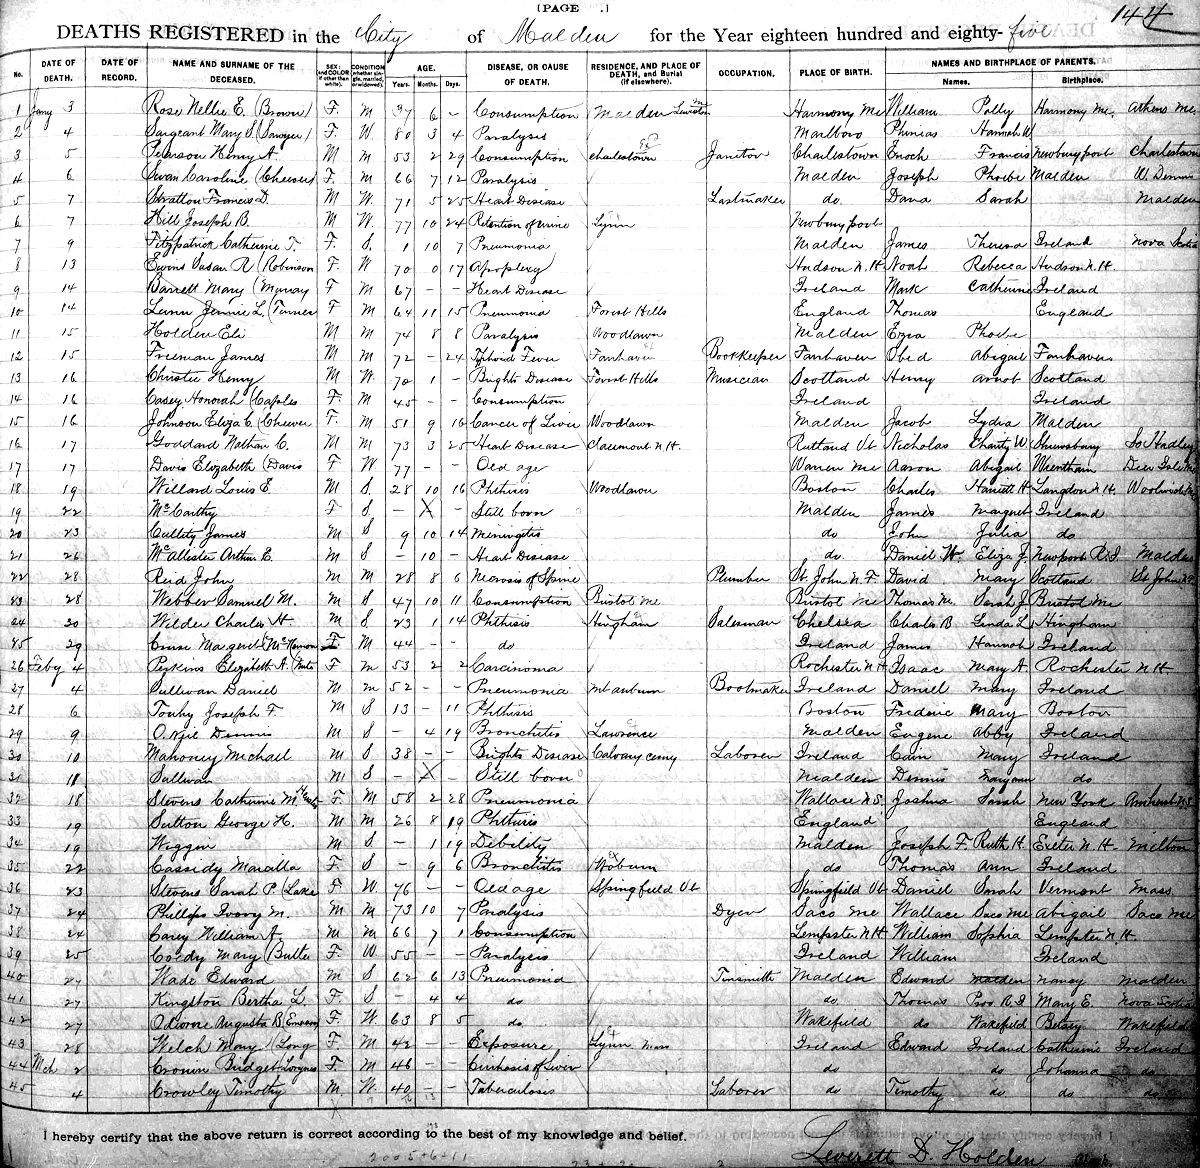 [PAGE .]
144
DEATHS REGISTERED in the City of Malden for the Year eighteen hundred and eighty-five
No. DATE OF DEATH. DATE OF RECORD. NAME AND SURNAME OF THE DECEASED. SEX: (and COLOR if other than white). CONDITION (whether single, married, or widowed). AGE. Years. Months. Days. DISEASE, OR CAUSE OF DEATH. RESIDENCE, AND PLACE OF DEATH, and Burial (if elsewhere). OCCUPATION. PLACE OF BIRTH. NAMES AND BIRTHPLACE OF PARENTS. Names. Birthplace.
1 Jany 3 Rose Nellie E. (Brown) F. M 37 6 - Consumption Malden Lewiston Me Harmony Me William Polly Harmony Me. Athens Me.
2 4 Sargeant Mary S. (Sawyer) F. W. 80 3 4 Paralysis Marlboro Phineas Hannah W
3 5 Pearson Henry A. M M 53 2 29 Consumption Charlestown Janitor Charlestown Enoch Francis Newburyport Charlestown
4 6 Swan Caroline (Cheever) F. M 66 7 12 Paralysis Malden Joseph Phoebe Malden W Dennis
5 7 Stratton Francis D. M W. 71 5 25 Heart Disease Lastmaker do. Dana Sarah Malden
6 7 Hill Joseph B. M W. 77 10 24 Retention of urine Lynn Newburyport
7 9 Fitzpatrick Catherine T. F. S. 1 10 7 Pneumonia Malden James Theresa Ireland Nova Scotia
8 13 Evans Susan R (Robinson F. W. 70 0 17 Apoplexy Hudson N.H. Noah Rebecca Hudson N.H.
9 14 Barrett Mary (Murray F M 67 - - Heart Disease Ireland Mark Catherine Ireland
10 14 Jennie L. (Turner F M 64 11 15 Pneumonia Forest Hills England Thomas England
11 15 Holden Eli M M 74 8 8 Paralysis Woodlawn Malden Ezra Phoebe
12 15 Freeman James M M 72 - 24 Typhoid Fever Fairhaven Bookkeeper Fairhaven Obed Abigail Fairhaven
13 16 Christie Henry M W. 70 1 - Brights Disease Forest Hills Musician Scotland Henry Arnot Scotland
14 16 Casey Honorah (Caples F. M 45 - - Consumption Ireland Ireland
15 16 Johnson Eliza C (Cheever F. M 51 9 16 Cancer of Liver Woodlawn Malden Jacob Lydia Malden
16 17 Goddard Nathan C. M M 73 3 25 Heart Disease Claremont N.H. Rutland Vt. Nicholas Charity W. Shrewsbury So Hadley
17 17 Davis Elizabeth (Davis F W. 77 - - Old age Warren Me Aaron Abigail Wrentham Deer Isle Me
18 19 Willard Louis E. M S. 28 10 16 Phthisis Woodlawn Boston Charles Harriett H Langdon N.H. Woolwich Me
19 22 McCarthy F S - X - Still born Malden James Margaret Ireland
20 23 Cullity James M S 9 10 14 Miningitis do John Julia do
21 26 McAllester Arthur E. M S - 10 - Heart Disease do. Daniel W. Eliza J. Newport R.I. Malden
22 28 Reid John M M 28 8 6 of Spine Plumber St. John N.F. David Mary Scotland St John N.F.
23 28 Webber Samuel M. M S 47 10 11 Consumption Bristol Me Bristol Me Thomas M. Sarah J. Bristol Me
24 30 Wilder Charles H M S 23 1 14 Phthisis Hingham Salesman Chelsea Charles B Linda L. Hingham
25 29 Margaret F. M 44 - - do Ireland James Hannah Ireland
26 Feby 4 Perkins Elizabeth A. F M 53 2 2 Carcinoma Rochester N.H. Isaac Mary A Rochester N.H.
27 4 Sullivan Daniel M M 52 - - Pneumonia Mt Auburn Bootmaker Ireland Daniel Mary Ireland
28 6 Touhy Joseph F. M S 13 - 11 Phthisis Boston Frederic Mary Boston
29 9 O'Neil Dennis M S - 4 19 Bronchitis Lawrence Malden Eugene Abby Ireland
30 10 Mahoney Michael M S. 38 - - Brights Disease Calvary cemy Laborer Ireland Mary Ireland
31 18 Sullivan M S - X - Still born Malden Dennis Mary Ann do
32 18 Stevens Catherine M. F. M 58 2 28 Pneumonia Wallace N.S. Joshua Sarah New York Amherst N.S.
33 19 Sutton George H. M M 26 8 19 Phthisis England England
34 19 Wiggin M S - 1 19 Debility Malden Joseph F. Ruth H. Exeter N.H. Milton
35 22 Cassidy Marcella F S - 9 6 Bronchitis Woburn do Thomas Ann Ireland
36 23 Stevens Sarah P. (Lake F W. 76 - - Old age Springfield Vt Springfield Vt Daniel Sarah Vermont Mass
37 24 Phillips Ivory M. M M 73 10 7 Paralysis Dyer Saco Me Wallace Saco Me Abigail Saco Me
38 24 Carey William A. M M 66 7 1 Consumption Lempster N.H. William Sophia Lempster N.H.
39 25 Coody Mary (Butler F. W 55 - - Paralysis Ireland William Ireland
40 27 Wade Edward M S 62 6 13 Pneumonia Tinsmith Malden Edward Malden Nancy Malden
41 27 Kingston Bertha L. F. S - 4 4 do do. Thomas Prov. R.I. Mary E. Nova Scotia
42 27 Odiorne Augusta B (Emerson F. W. 63 8 5 do. Wakefield do Wakefield Betsey Wakefield
43 28 Welch Mary (Long F M 42 - - Exposure Lynn Mass Ireland Edward Ireland Catherine Ireland
44 Mch 2 Cronin Bridget F. M 46 - - Cirrhosis of Liver do do Johanna do
45 4 Crowley Timothy M. W. 40 - - Tuberculosis Laborer do Timothy do do do
I hereby certify that the above return is correct according to the best of my knowledge and belief.
2005+6+11
Leverett D. Holden